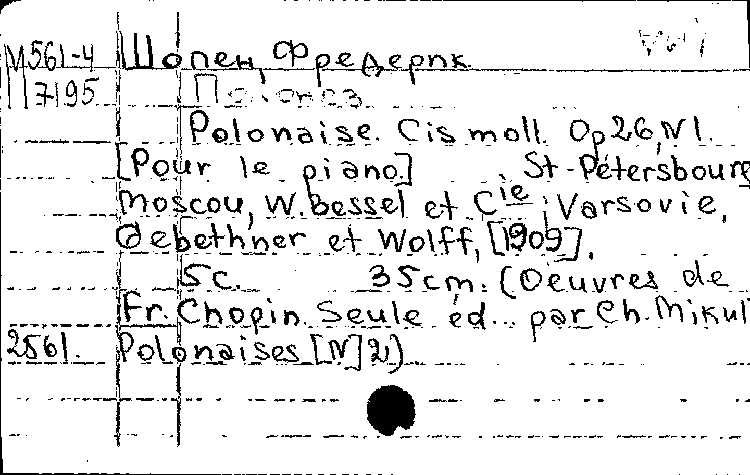 М561-4 Шопен, Фредерик.
П7195 Полонез
Polonaise. Cis moll. Op 26, N1.
[Pour le piano.] St-Pétersbourg
Moscou, W. Bessel et Cie; Varsovie,
Gebethner et Wolff, [1909].
5c. 35cm. (Oeuvres de
Fr. Chopin. Seule éd. par Ch. Mikul
2561. Polonaises [N] 2)